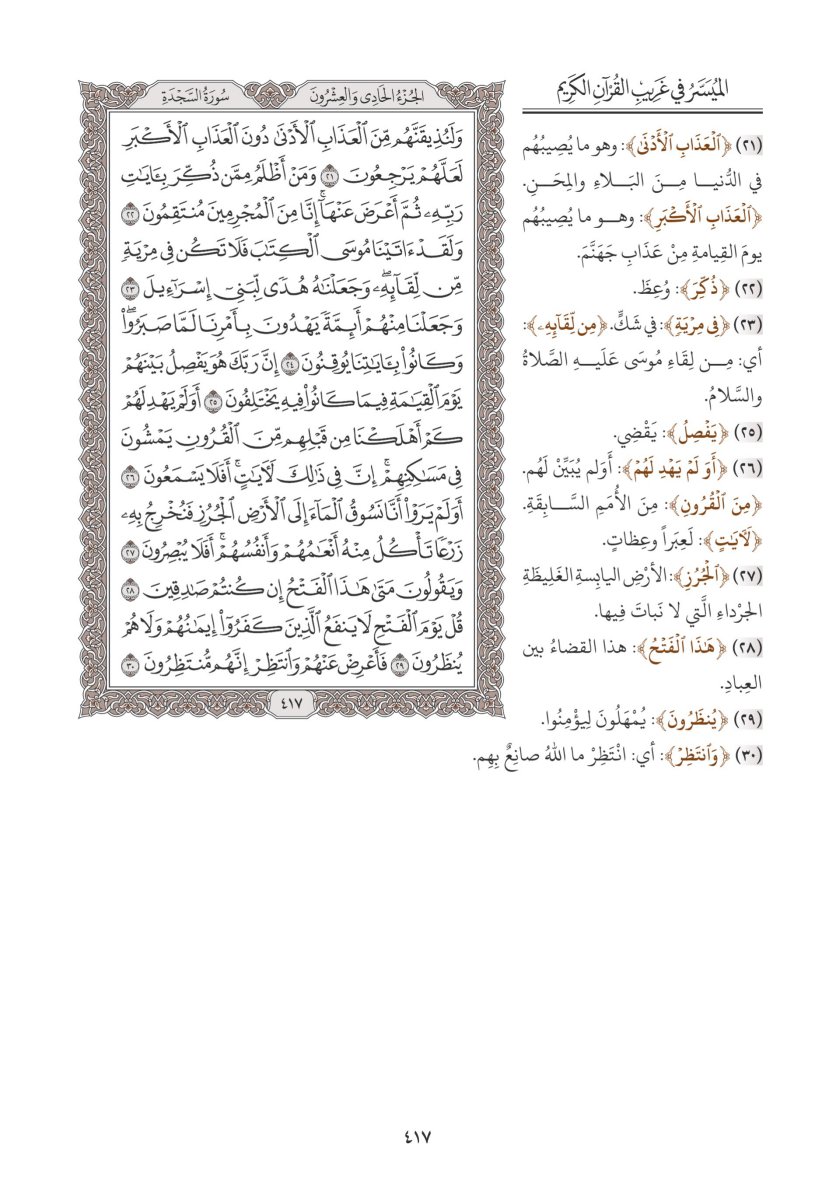 الميسر في غريب القرآن الكريم
(٢١) ﴿ٱلۡعَذَابِ ٱلۡأَدۡنَىٰ﴾: وهو ما يُصِيبُهُم
في الدُّنيا مِنَ البَلاءِ والمِحَنِ.
﴿ٱلۡعَذَابِ ٱلۡأَكۡبَرِ﴾: وهو ما يُصِيبُهُم
يومَ القِيامةِ مِنْ عَذَابِ جَهَنَّمَ.
(٢٢) ﴿ذُكِّرَ﴾: وُعِظَ.
(٢٣) ﴿فِي مِرۡيَةٖ﴾: في شَكٍّ. ﴿مِن لِّقَآئِهِۦ﴾:
أي: مِن لِقَاءِ مُوسَى عَلَيهِ الصَّلاةُ
والسَّلامُ.
(٢٥) ﴿يَفۡصِلُ﴾: يَقْضِي.
(٢٦) ﴿أَوَ لَمۡ يَهۡدِ لَهُمۡ﴾: أَوَلم يُبَيِّنْ لَهُم.
﴿مِنَ ٱلۡقُرُونِ﴾: مِنَ الأُمَمِ السَّابِقَةِ.
﴿لَأٓيَٰتٍ﴾: لَعِبَراً وعِظاتٍ.
(٢٧) ﴿ٱلۡجُرُزِ﴾: الأرْضِ اليابِسةِ الغَلِيظَةِ
الجرْداءِ الَّتي لا نَباتَ فِيها.
(٢٨) ﴿هَٰذَا ٱلۡفَتۡحُ﴾: هذا القضاءُ بين
العِبادِ.
(٢٩) ﴿يُنظَرُونَ﴾: يُمْهَلُونَ لِيؤْمِنُوا.
(٣٠) ﴿وَٱنتَظِرۡ﴾: أي: انْتَظِرْ ما اللهُ صانِعٌ بِهِم.
الجُزْءُ الحَادِي وَالعِشْرُونَ سُورَةُ السَّجْدَةِ
وَلَنُذِيقَنَّهُم مِّنَ ٱلۡعَذَابِ ٱلۡأَدۡنَىٰ دُونَ ٱلۡعَذَابِ ٱلۡأَكۡبَرِ
لَعَلَّهُمۡ يَرۡجِعُونَ ٢١ وَمَنۡ أَظۡلَمُ مِمَّن ذُكِّرَ بِـَٔايَٰتِ
رَبِّهِۦ ثُمَّ أَعۡرَضَ عَنۡهَآۚ إِنَّا مِنَ ٱلۡمُجۡرِمِينَ مُنتَقِمُونَ ٢٢
وَلَقَدۡ ءَاتَيۡنَا مُوسَى ٱلۡكِتَٰبَ فَلَا تَكُن فِي مِرۡيَةٖ
مِّن لِّقَآئِهِۦۖ وَجَعَلۡنَٰهُ هُدٗى لِّبَنِيٓ إِسۡرَٰٓءِيلَ ٢٣
وَجَعَلۡنَا مِنۡهُمۡ أَئِمَّةٗ يَهۡدُونَ بِأَمۡرِنَا لَمَّا صَبَرُواْۖ
وَكَانُواْ بِـَٔايَٰتِنَا يُوقِنُونَ ٢٤ إِنَّ رَبَّكَ هُوَ يَفۡصِلُ بَيۡنَهُمۡ
يَوۡمَ ٱلۡقِيَٰمَةِ فِيمَا كَانُواْ فِيهِ يَخۡتَلِفُونَ ٢٥ أَوَلَمۡ يَهۡدِ لَهُمۡ
كَمۡ أَهۡلَكۡنَا مِن قَبۡلِهِم مِّنَ ٱلۡقُرُونِ يَمۡشُونَ
فِي مَسَٰكِنِهِمۡۚ إِنَّ فِي ذَٰلِكَ لَأٓيَٰتٍۚ أَفَلَا يَسۡمَعُونَ ٢٦
أَوَلَمۡ يَرَوۡاْ أَنَّا نَسُوقُ ٱلۡمَآءَ إِلَى ٱلۡأَرۡضِ ٱلۡجُرُزِ فَنُخۡرِجُ بِهِۦ
زَرۡعٗا تَأۡكُلُ مِنۡهُ أَنۡعَٰمُهُمۡ وَأَنفُسُهُمۡۚ أَفَلَا يُبۡصِرُونَ ٢٧
وَيَقُولُونَ مَتَىٰ هَٰذَا ٱلۡفَتۡحُ إِن كُنتُمۡ صَٰدِقِينَ ٢٨
قُلۡ يَوۡمَ ٱلۡفَتۡحِ لَا يَنفَعُ ٱلَّذِينَ كَفَرُوٓاْ إِيمَٰنُهُمۡ وَلَا هُمۡ
يُنظَرُونَ ٢٩ فَأَعۡرِضۡ عَنۡهُمۡ وَٱنتَظِرۡ إِنَّهُم مُّنتَظِرُونَ ٣٠
٤١٧
٤١٧